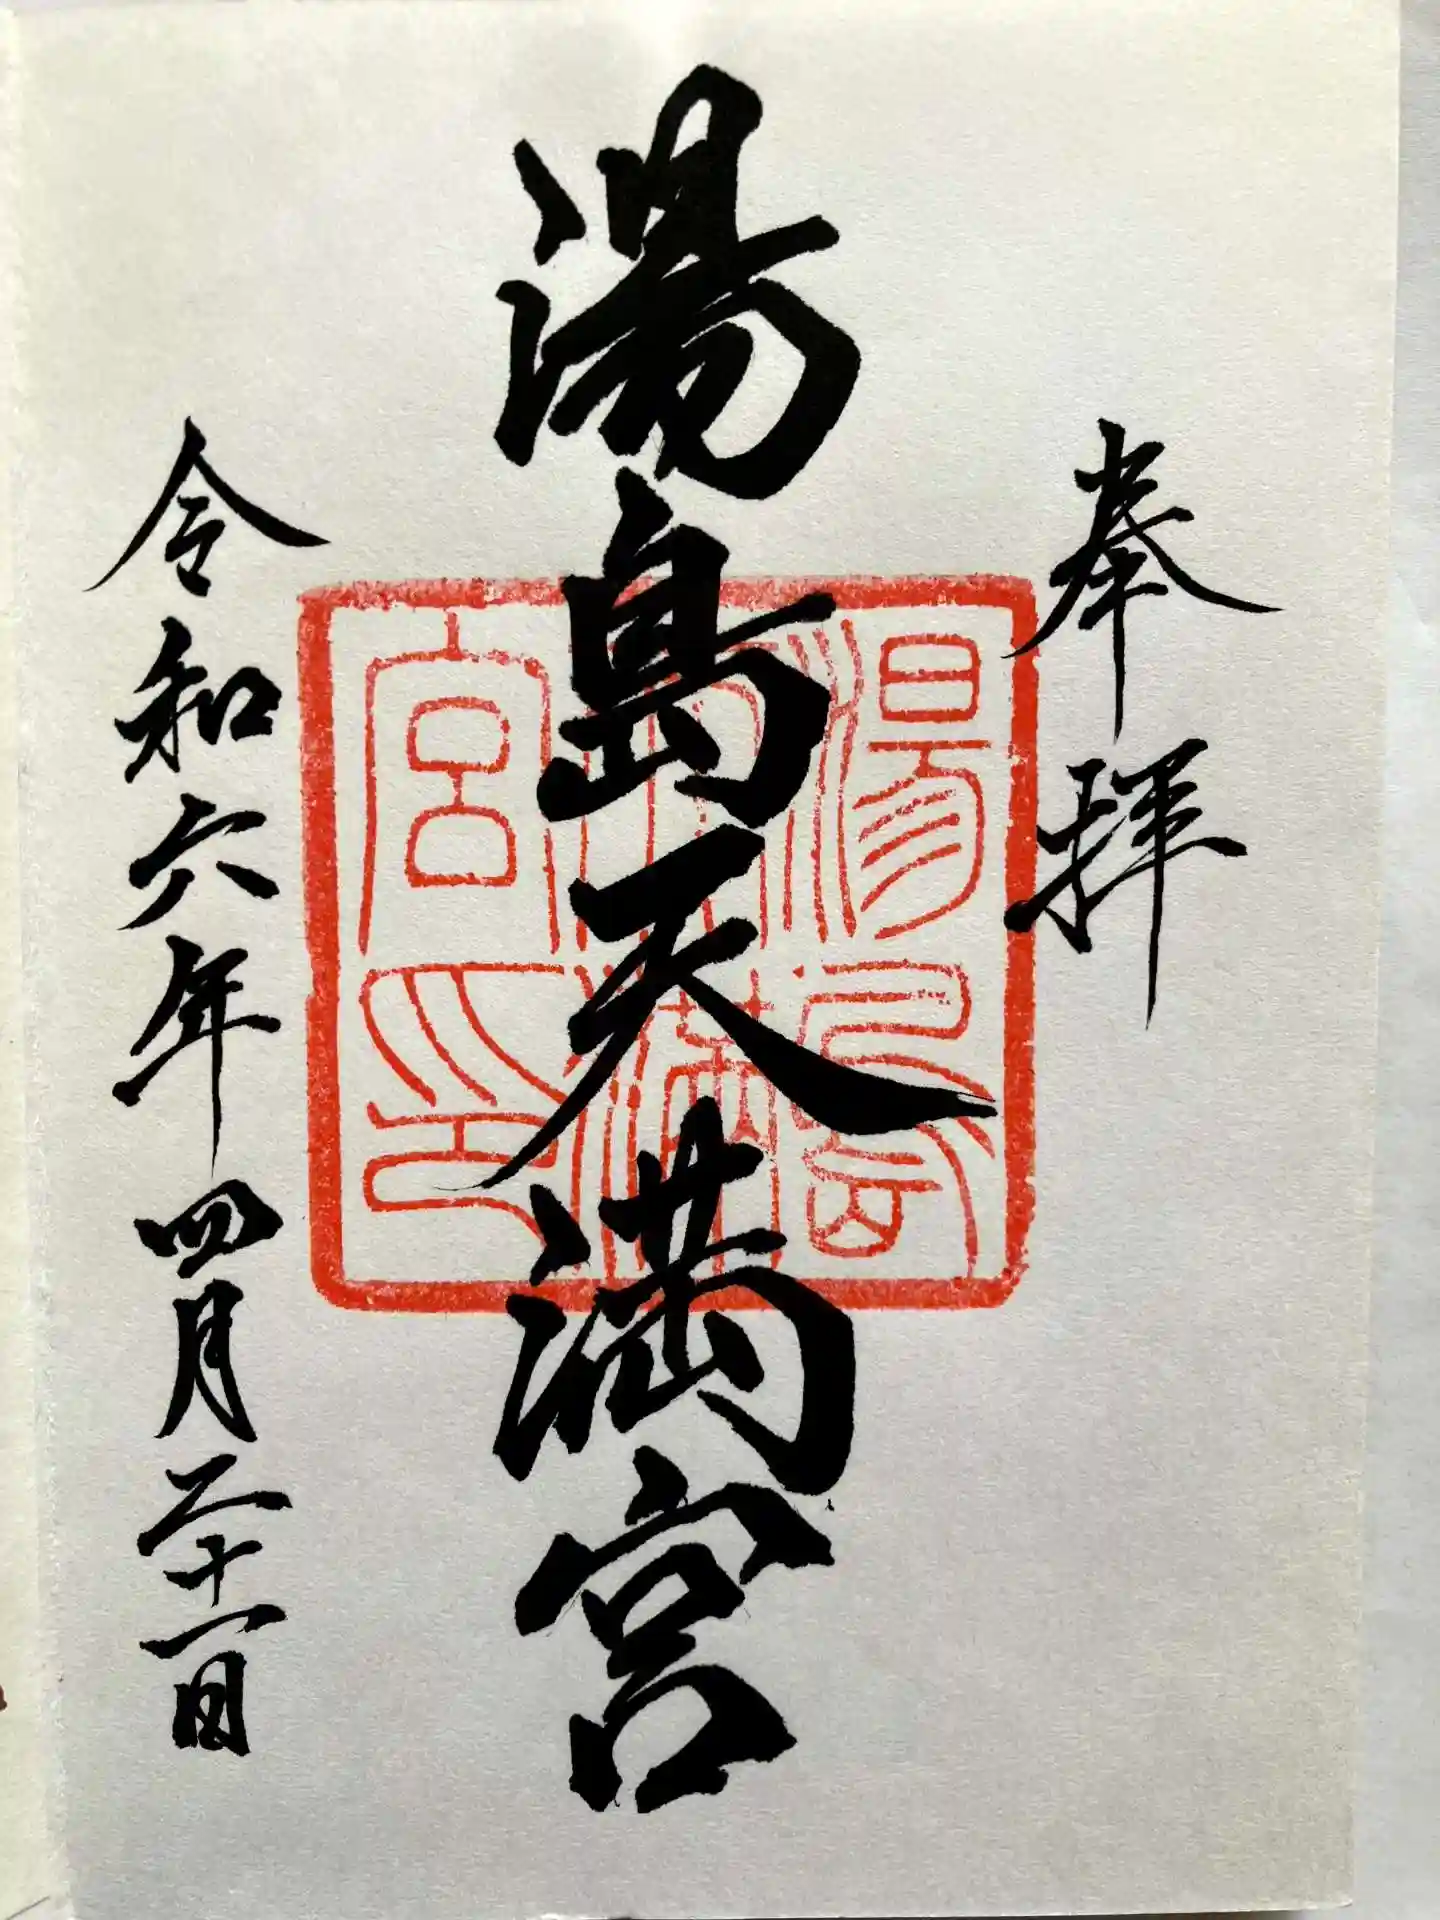 奉拝
湯島天満宮
湯島
天満
宮印
令和六年四月二十一日